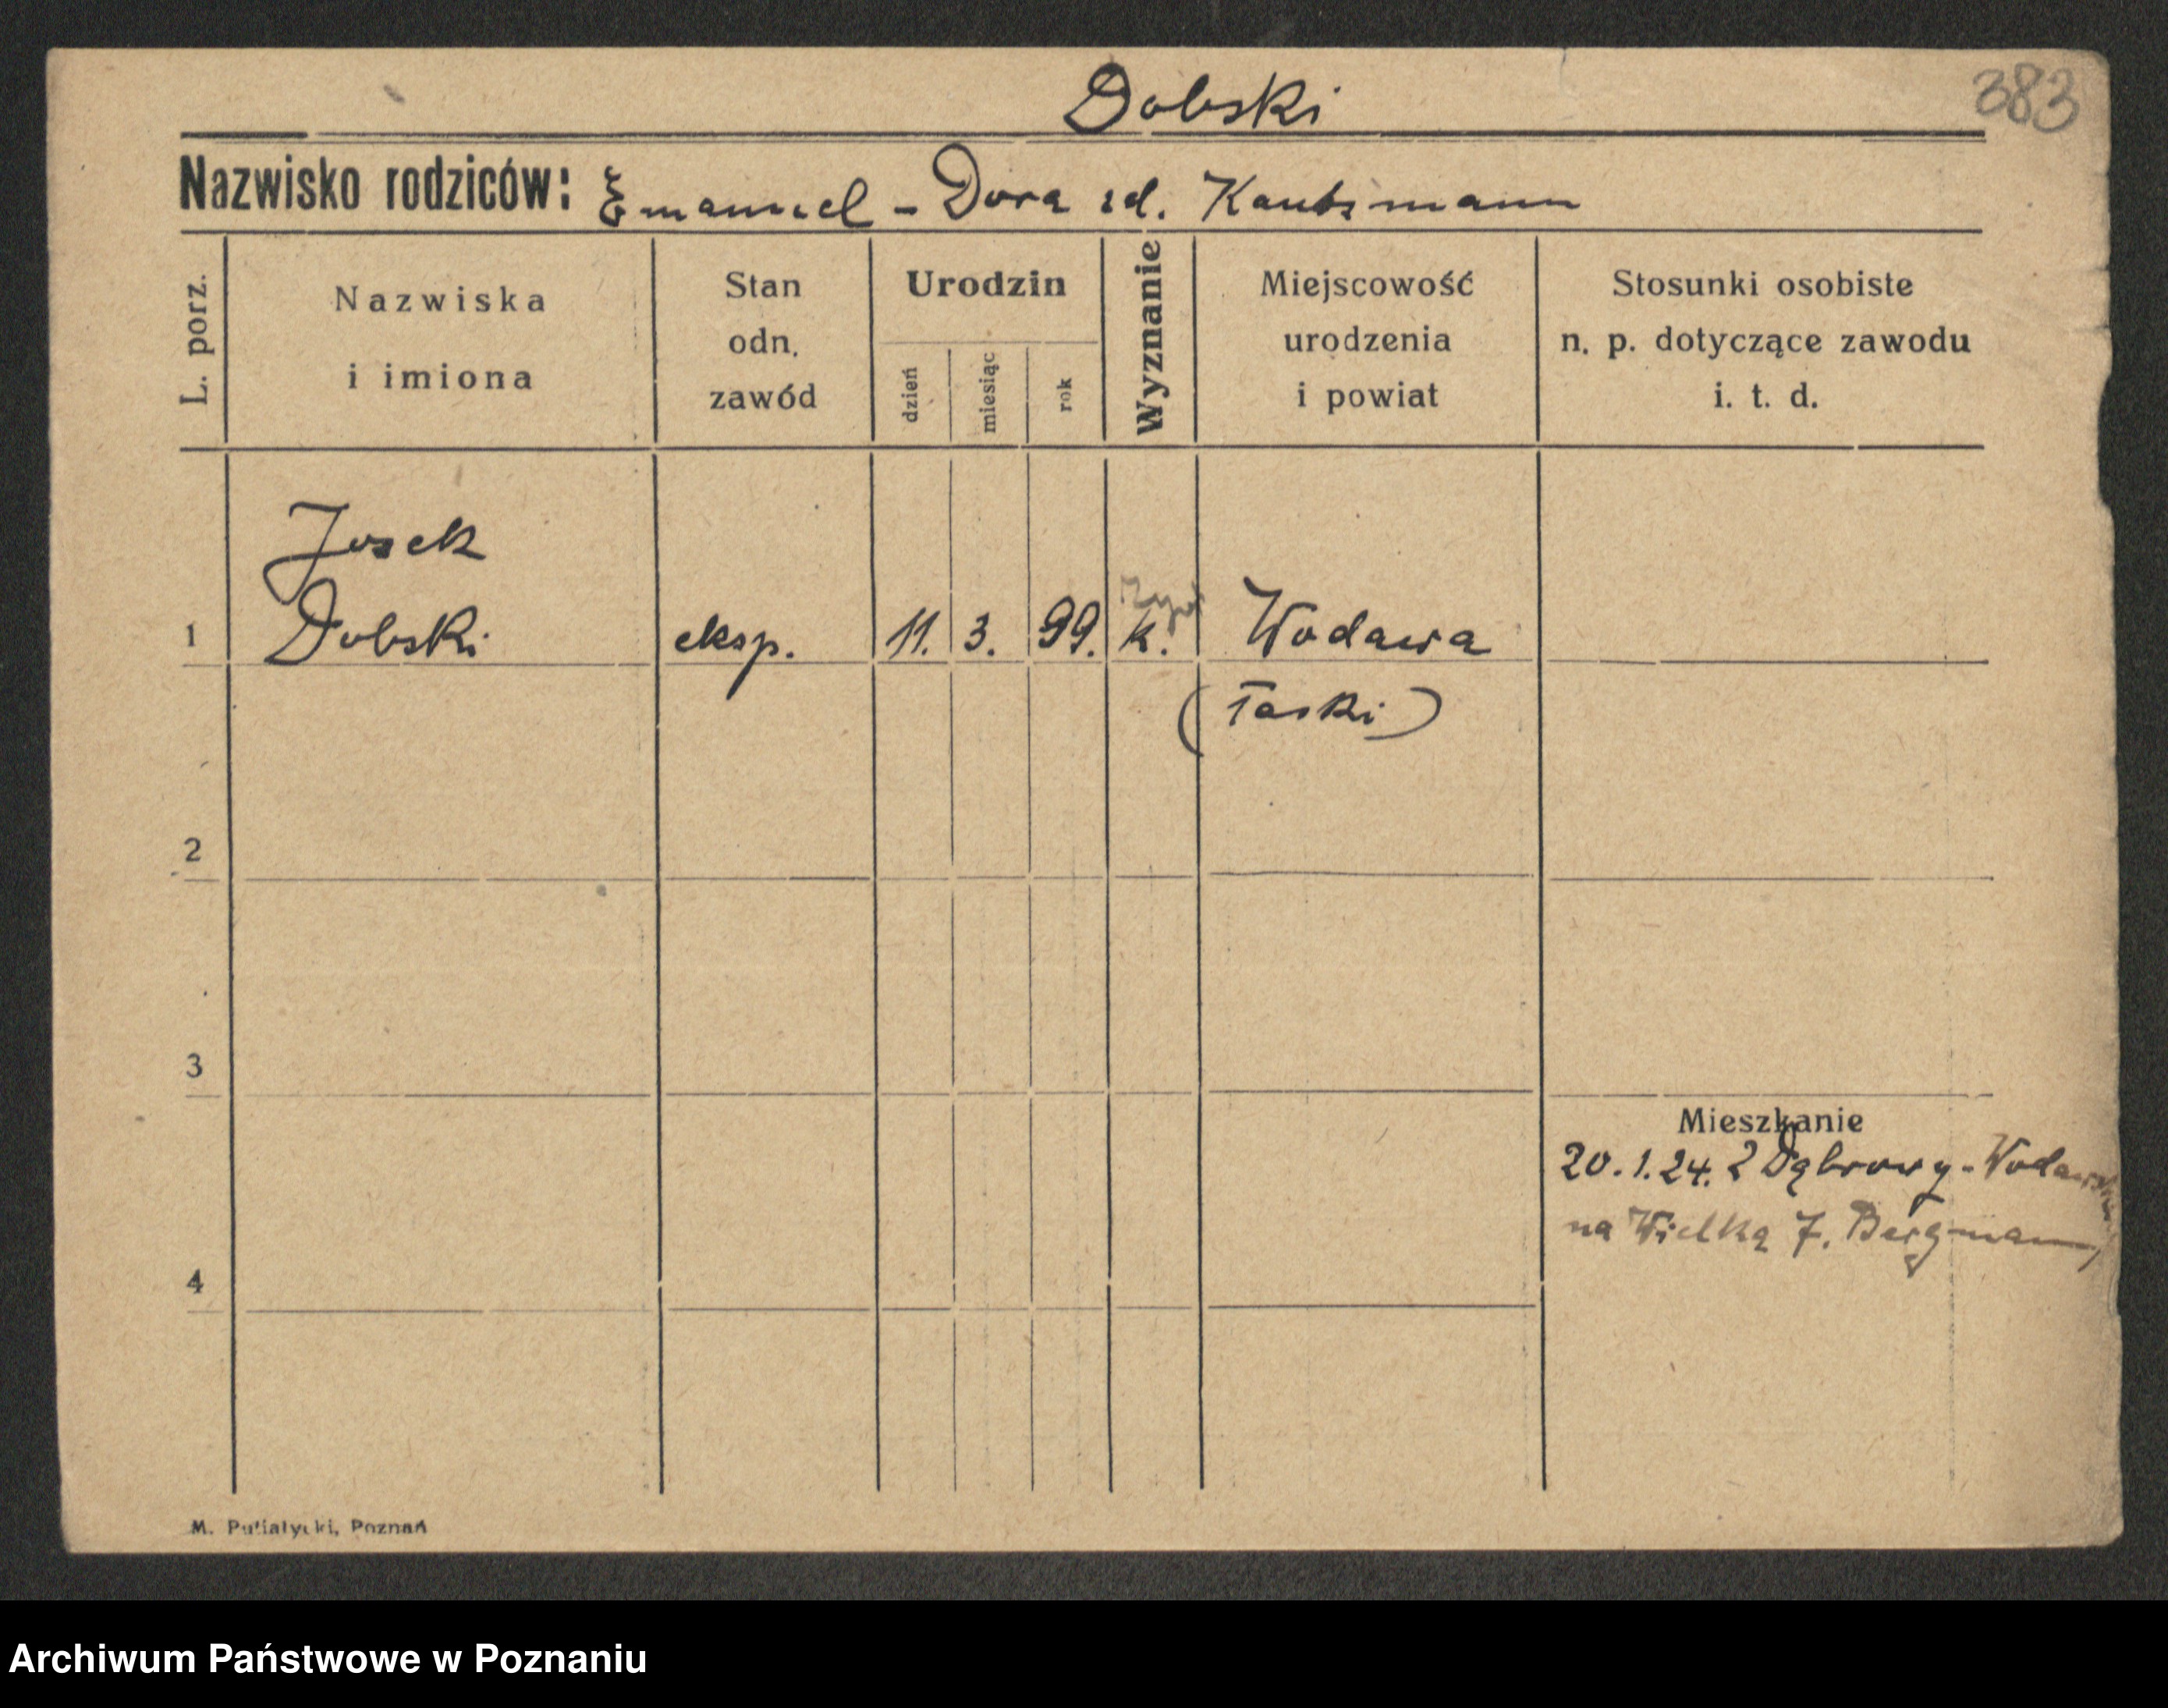 Dobski
383
Nazwisko rodziców: Emanuel - Dora zd. Kautzmann
L. porz.
Nazwiska
i imiona
Stan
odn.
zawód
Urodzin
dzień
miesiąc
rok
Wyznanie
Miejscowość
urodzenia
i powiat
Stosunki osobiste
n. p. dotyczące zawodu
i. t. d.
Josek
1 Dobski eksp. 11. 3. 99. k. Wodawa
(Łaski)
2
3
Mieszkanie
20.1.24. z Dąbrowy-
na Wielką 7. Bergmann
4
M. Putiatycki, Poznań
Archiwum Państwowe w Poznaniu